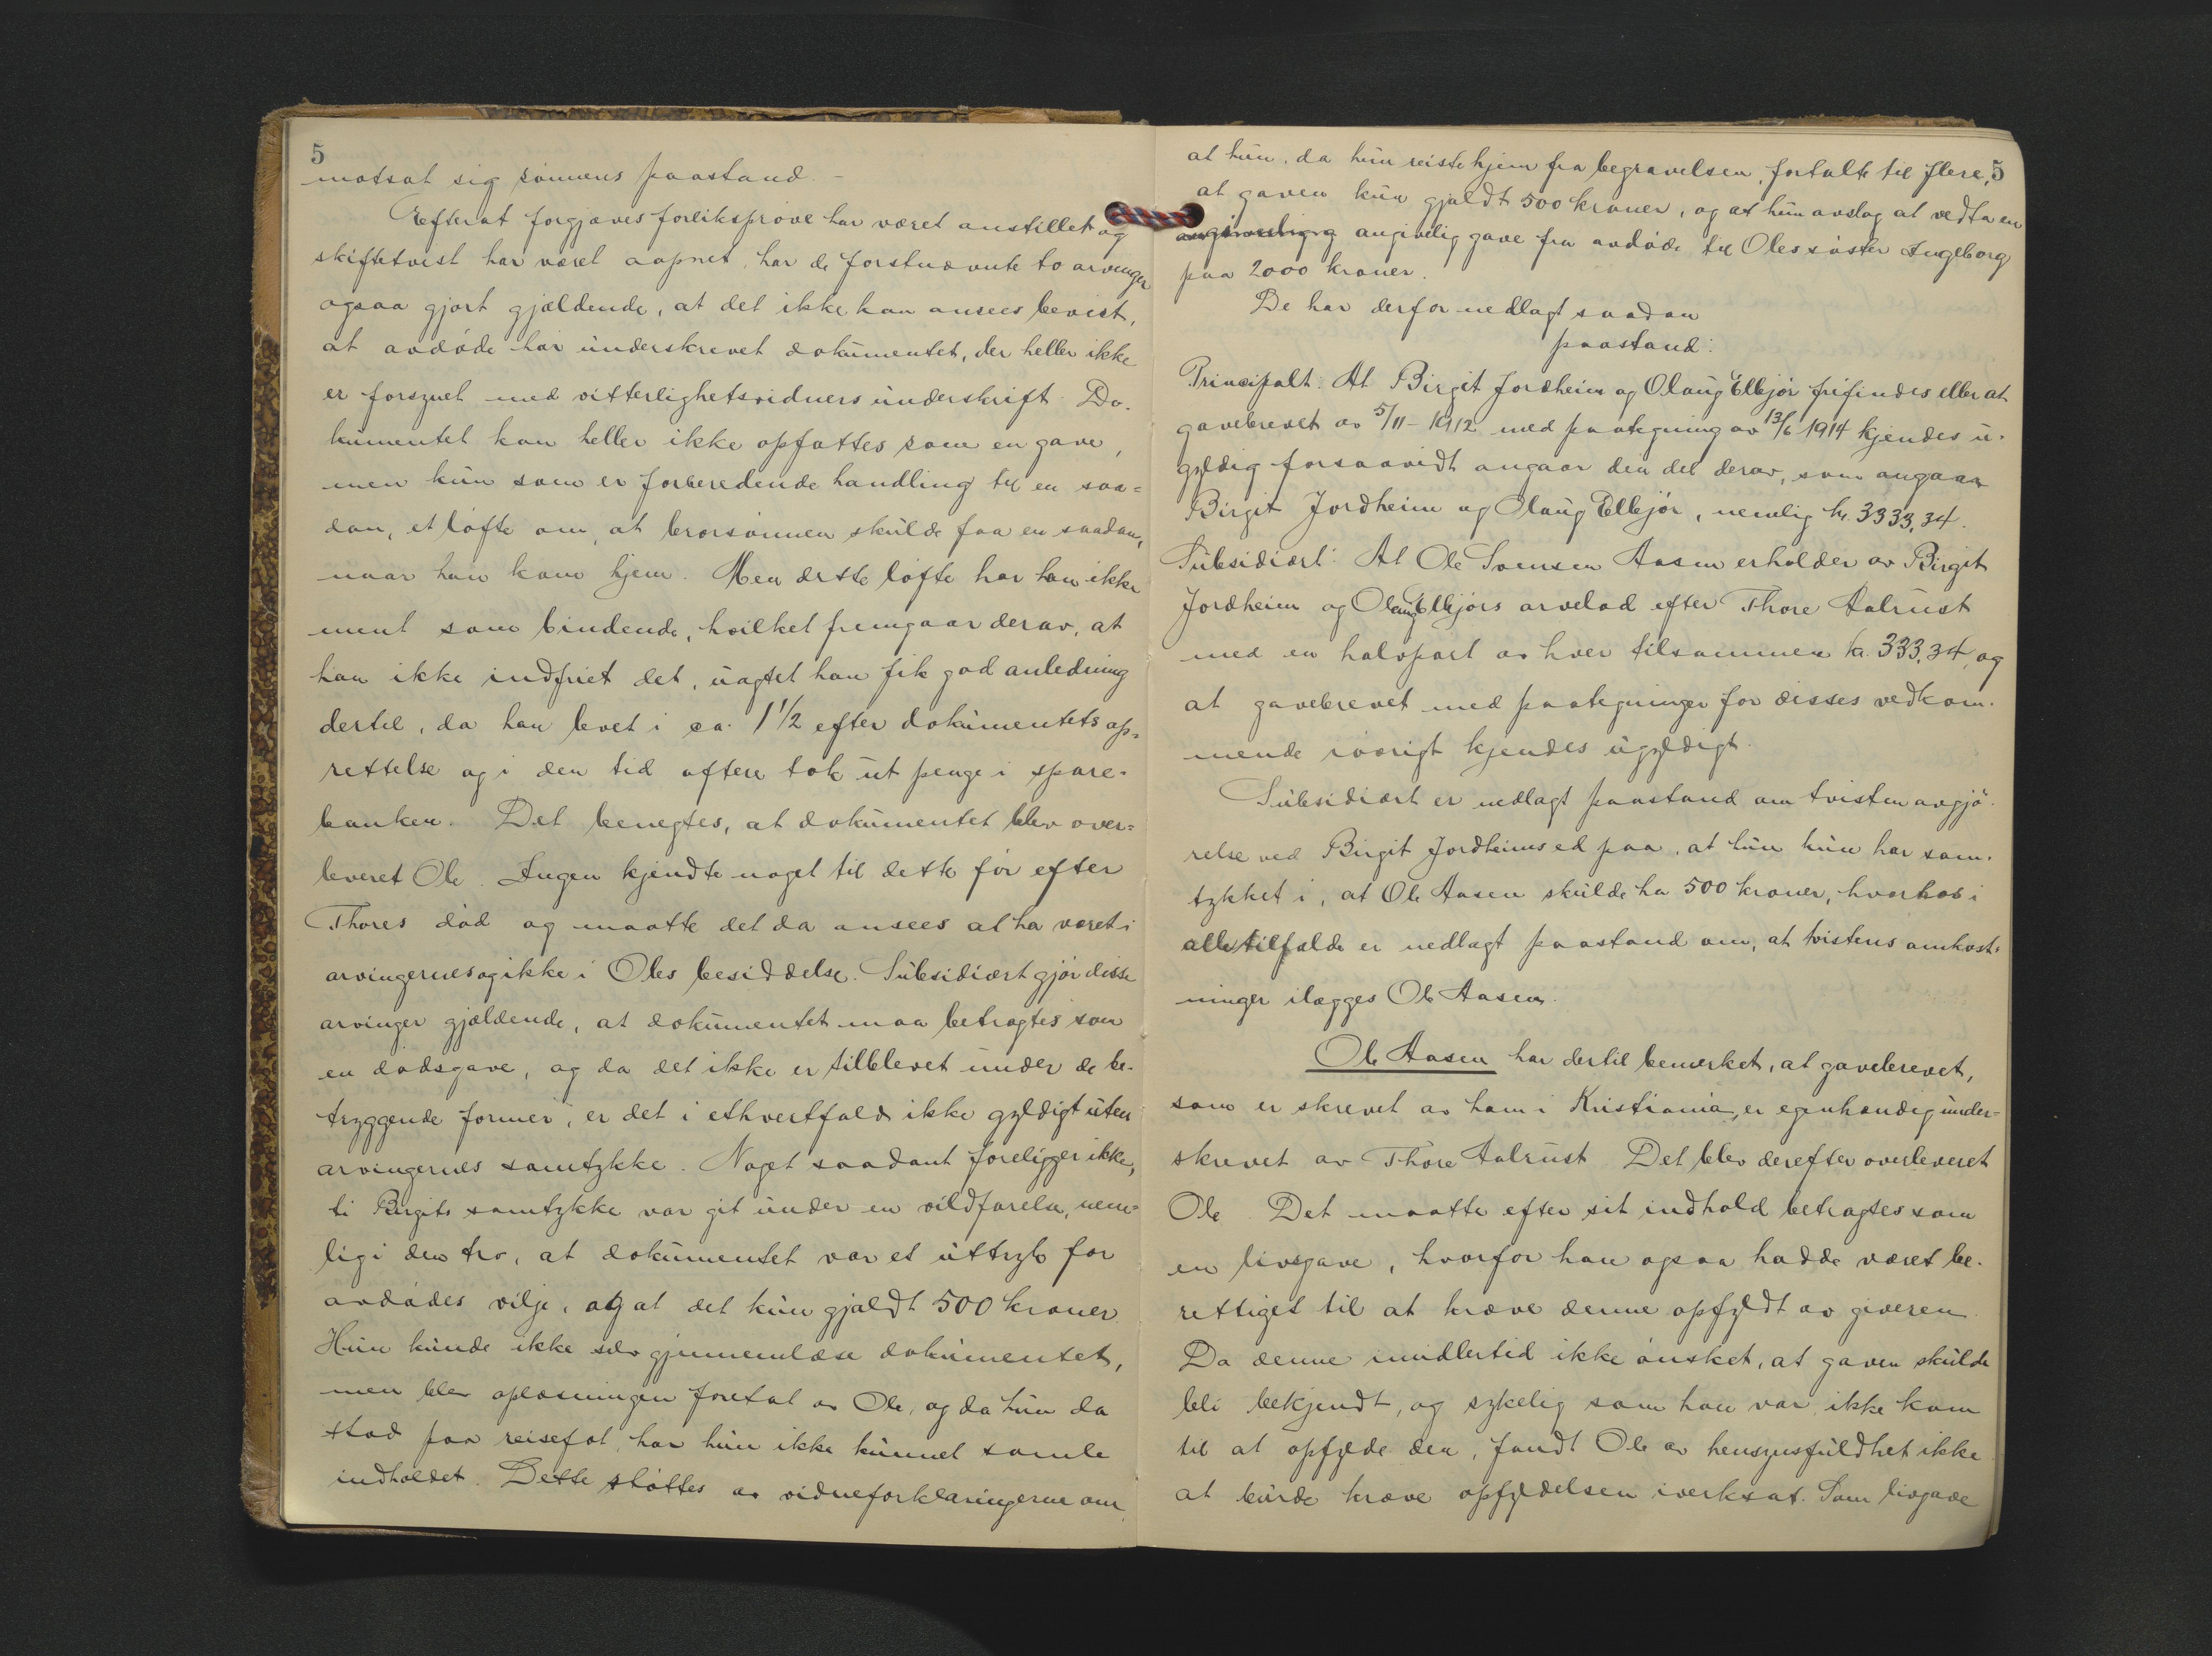 5
motsat sig sönnens paastand. -
Efterat forgjæves forliksprøve har været anstillet og
skiftetvist har været aapnet, har de førstnævnte to arvinger
ogsaa gjort gjældende, at det ikke kan ansees bevist,
at avdøde har underskrevet dokumentet, der heller ikke
er forsynet med vitterlighetsvidners underskrift. Do-
kumentet kan heller ikke opfattes som en gave,
men kun som er forberedende handling til en saa=
dan, et løfte om, at brorsønnen skulde faa en saadan,
naar han kom hjem. Men dette løfte har han ikke
ment som bindende, hvilket fremgaar derav, at
han ikke indfriet det, uagtet han fik god anledning
dertil, da han levet i ca. 1 1/2 efter dokumentets op=
rettelse og i den tid oftere tok ut penge i spare-
banken. Det benegtes, at dokumentet blev over=
leveret Ole. Ingen kjendte noget til dette før efter
Thores død og maatte det da ansees at ha været i
arvingernes og ikke i Oles besiddelse. Subsidiært gjør disse
arvinger gjældende, at dokumentet maa betragtes som
en dødsgave, og da det ikke er tilblevet under de be-
tryggende former, er det i ethvertfald ikke gyldigt uten
arvingernes samtykke. Noget saadant foreligger ikke,
ti Birgits samtykke var git under en vildfarelse, nem=
lig i den tro, at dokumentet var et uttryk for
avdødes vilje, og at det kun gjaldt 500 kroner.
Hun kunde ikke selv gjennemlæse dokumentet,
men blev oplæsningen foretat av Ole, og da hun da
stod paa reisefot, har hun ikke kunnet samle
indholdet. Dette støttes av vidneforklaringerne om,
5
at hun, da hun reiste hjem fra begravelsen, fortalte til flere,
at gaven kun gjaldt 500 kroner, og at hun avslog at vedta en
angivelig gave fra avdøde til Oles søster Ingeborg
paa 2000 kroner.
De har derfor nedlagt saadan
paastand:
Principalt: At Birgit Jordheim og Olaug Ellejør frifindes eller at
gavebrevet av 5/11 - 1912 med paategning av 13/6 1914 kjendes u-
gyldig forsaavidt angaar den del derav, som angaar
Birgit Jordheim og Olaug Ellejør, nemlig kr. 3333,34.
Subsidiært: At Ole Svensen Aasen erholder av Birgit
Jordheim og Olaug Ellejørs arvelod efter Thore Aalrust
med en halvpart av hver tilsammen kr. 333,34, og
at gavebrevet med paategninger for disses vedkom-
mende iøvrigt kjendes ugyldigt.
Subsidiært er nedlagt paastand om tvistens avgjø-
relse ved Birgit Jordheims ed paa, at hun kun har sam-
tykket i, at Ole Aasen skulde ha 500 kroner, hvorhos i
alle tilfælde er nedlagt paastand om, at tvistens omkost-
ninger ilægges Ole Aasen.
Ole Aasen har dertil bemerket, at gavebrevet,
som er skrevet av ham i Kristiania, er egenhændig under=
skrevet av Thore Aalrust. Det blev derefter overleveret
Ole. Det maatte efter sit indhold betragtes som
en livsgave, hvorfor han ogsaa hadde været be-
rettiget til at kræve denne opfyldt av giveren.
Da denne imidlertid ikke ønsket, at gaven skulde
bli bekjendt, og sykelig som han var, ikke kom
til at opfylde den, fandt Ole av hensynsfuldhet ikke
at burde kræve opfyldelsen iverksat. Som livgave